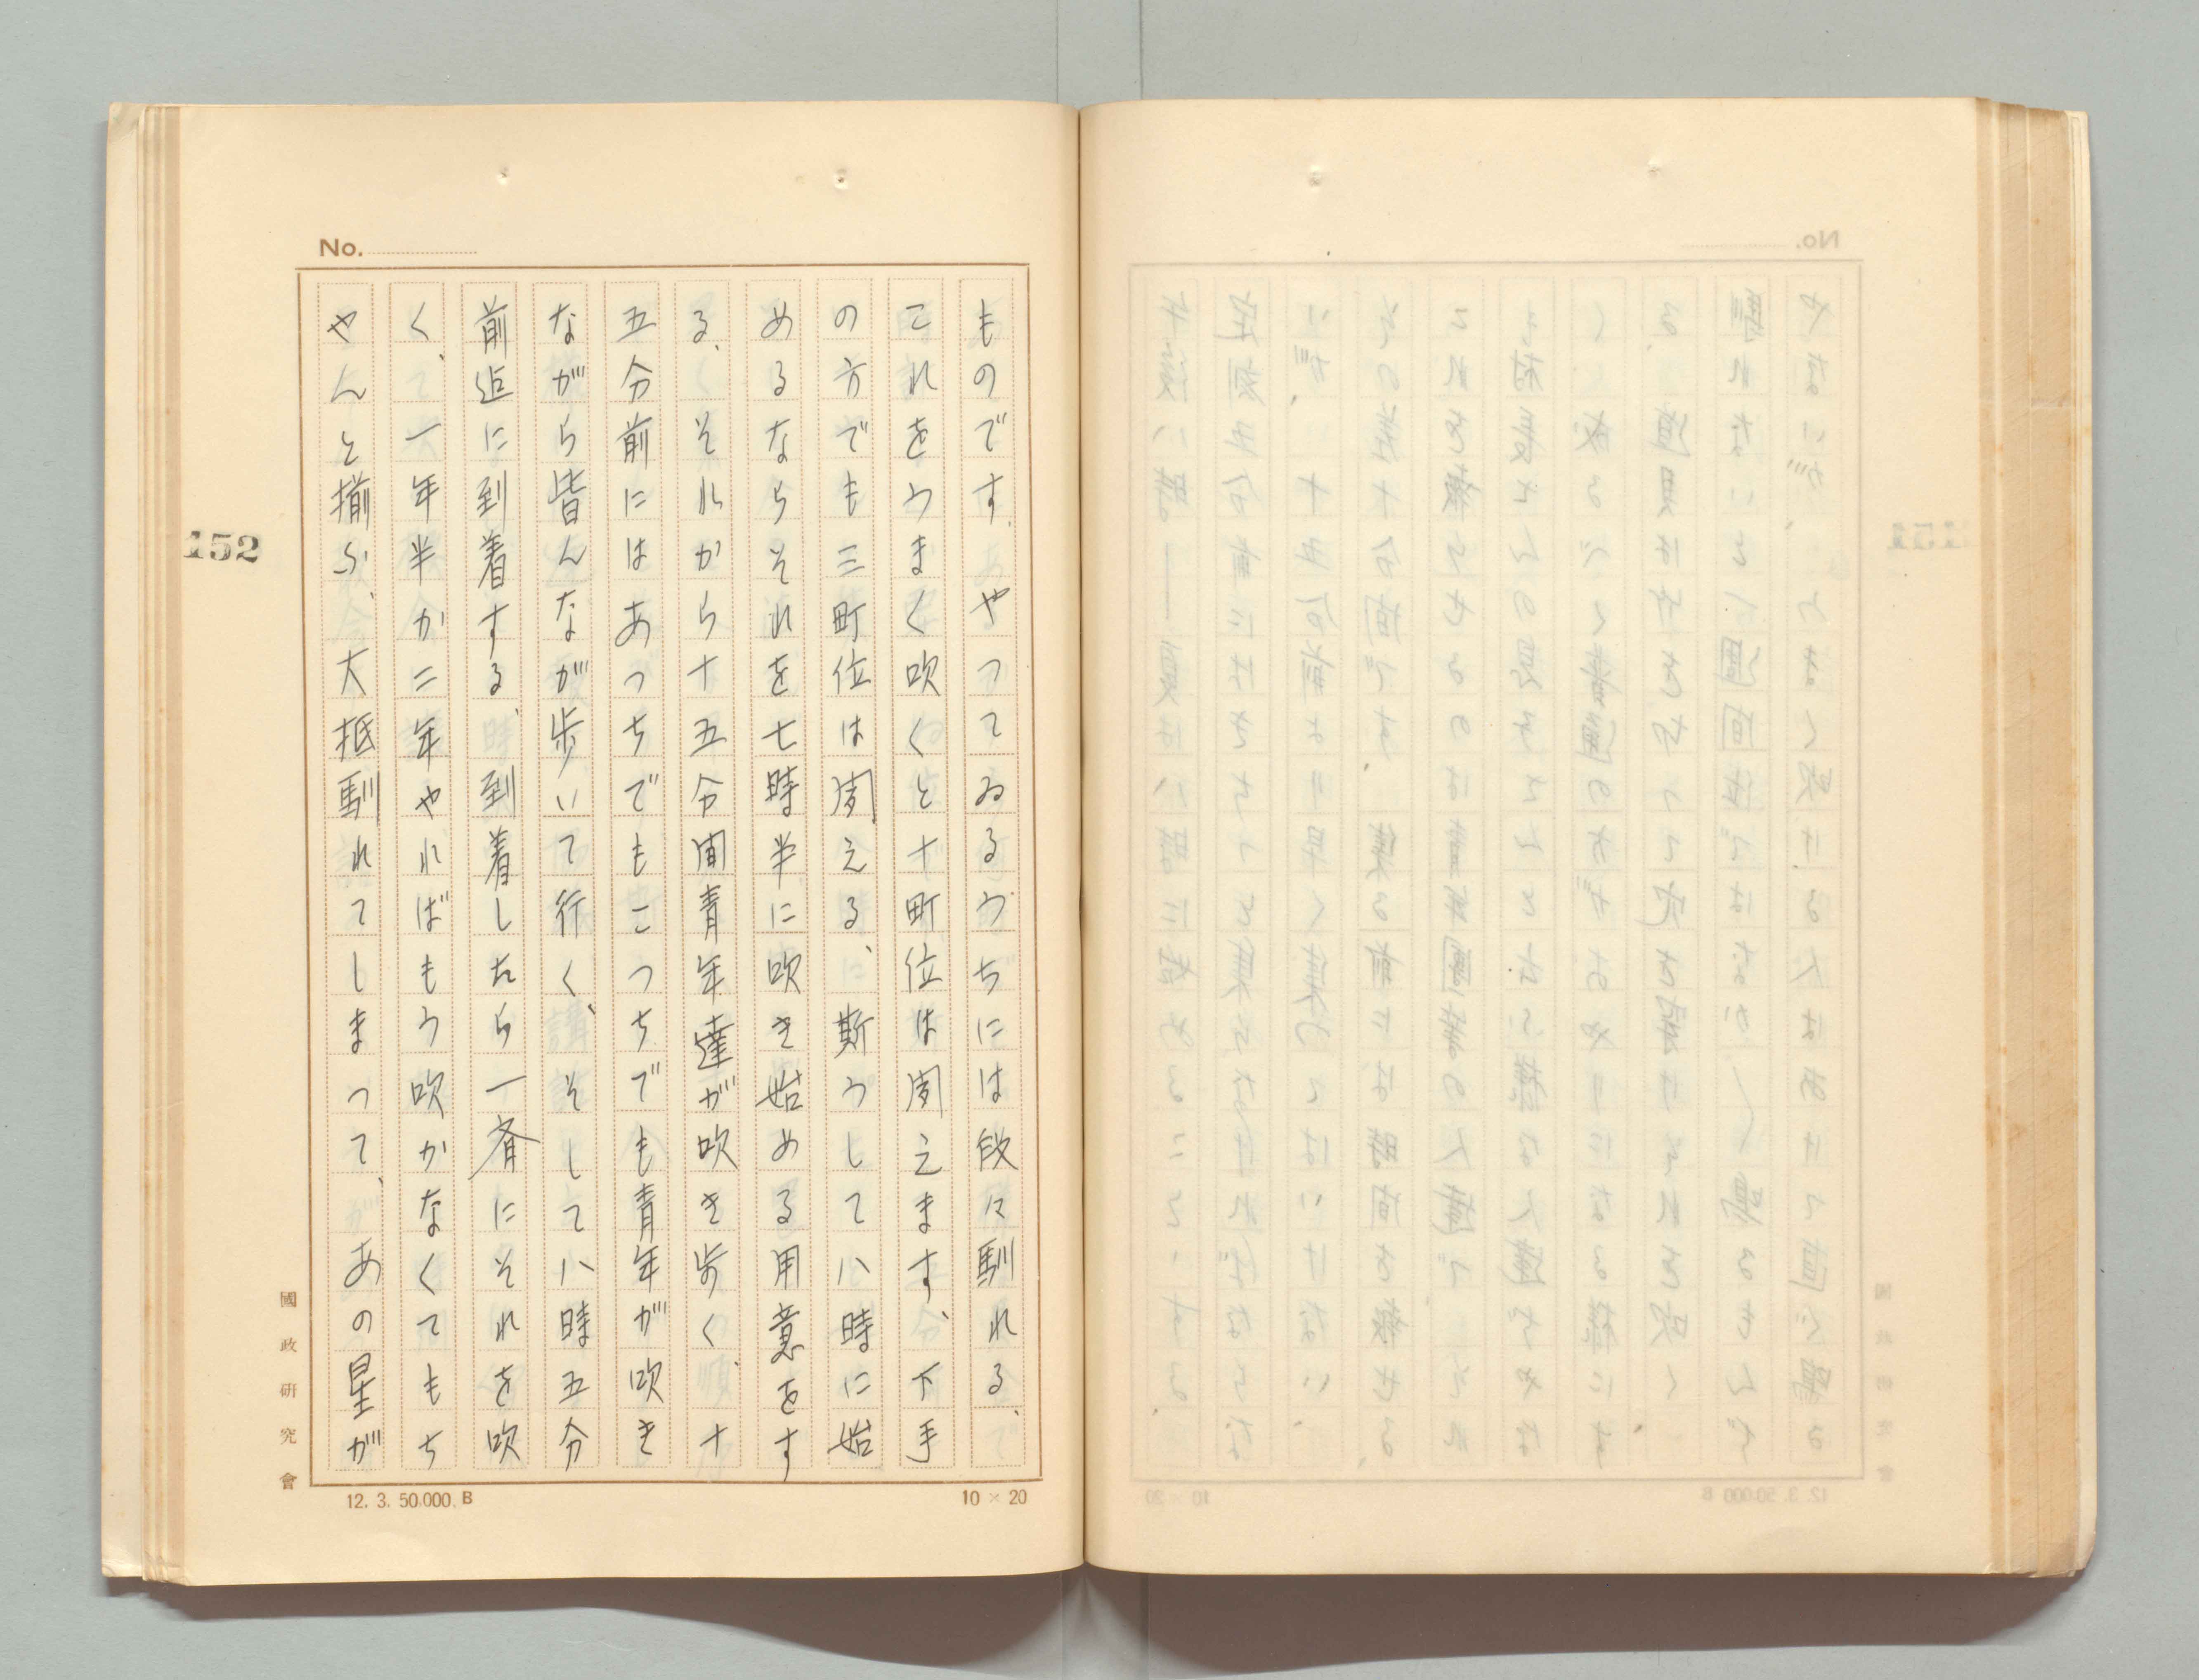 No.
ものです、やつてゐるうちには段々馴れる、
これをうまく吹くと十町位は聞えます、下手
の方でも三町位は聞える、斯うして八時に始
めるならそれを七時半に吹き始める用意をす
る、それから十五分間青年達が吹き歩く、十
五分前にはあつちでもこつちでも青年が吹き
ながら皆んなが歩いて行く、そして八時五分
前迄に到着する、到着したら一斉にそれを吹
く、一年半か二年やればもう吹かなくてもち
やんと揃ふ、大抵馴れてしまつて、あの星が
152
國政研究會
12. 3. 50.000. B
10 × 20